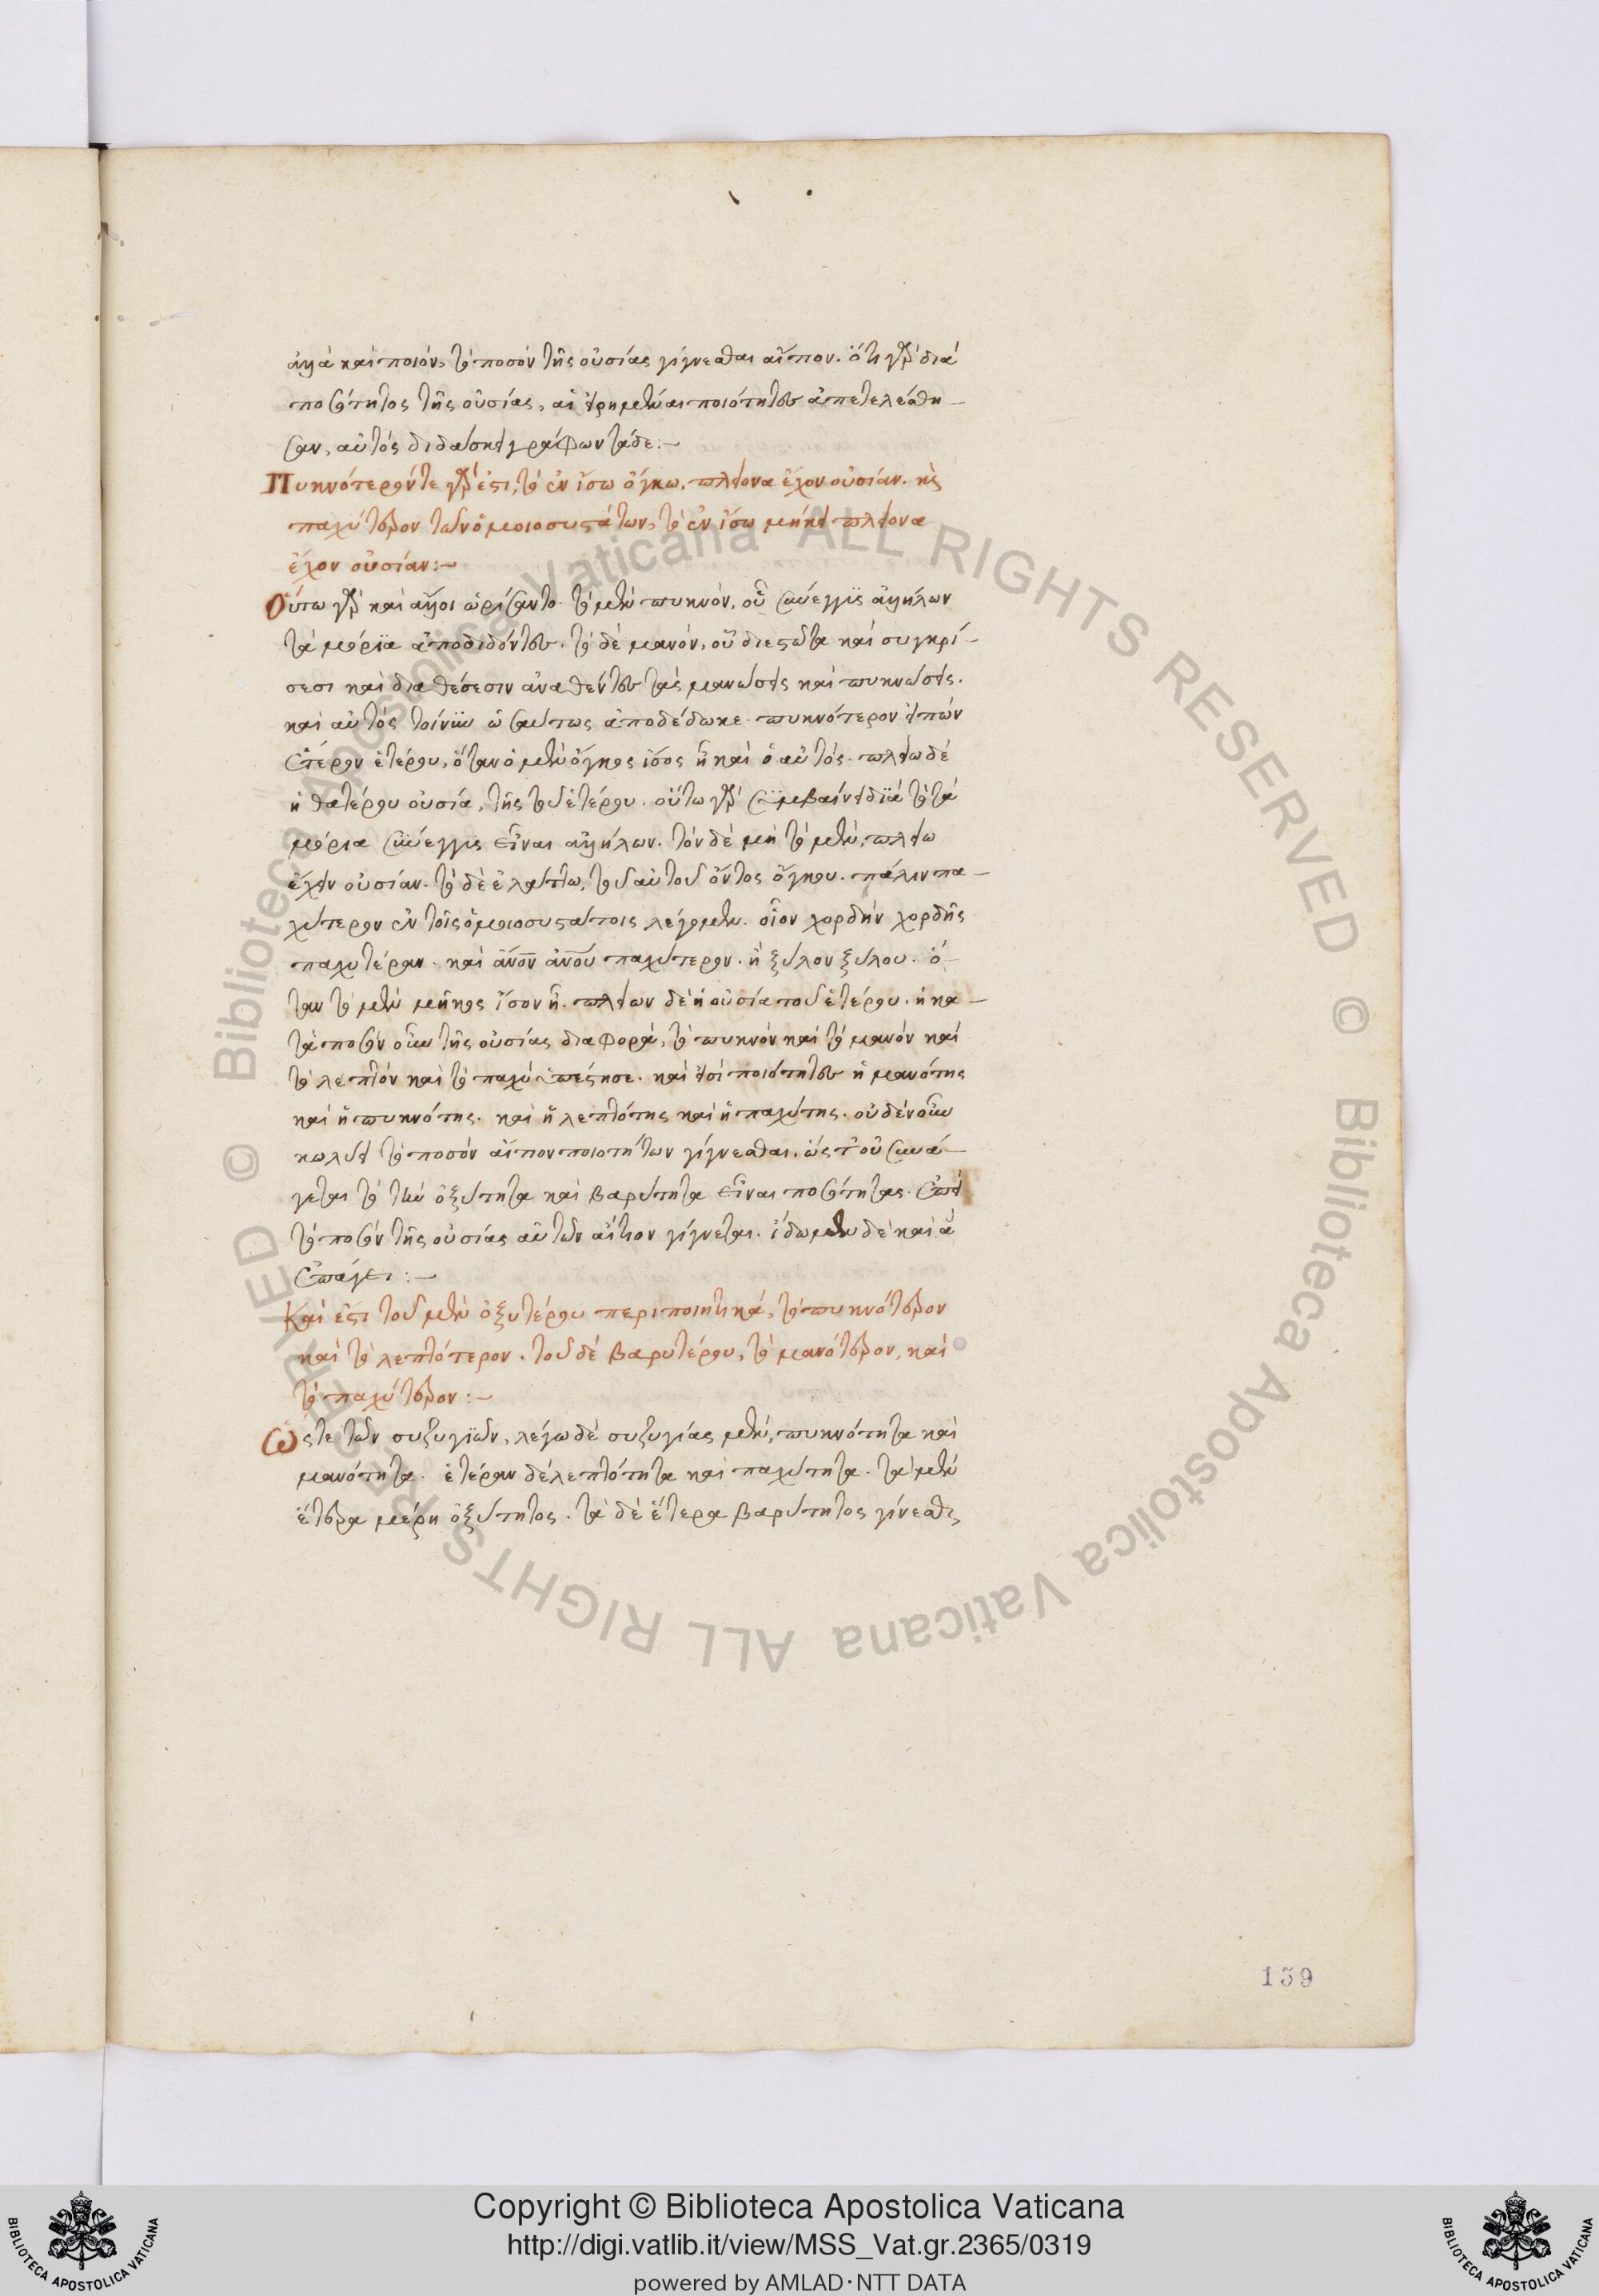 ἀλλὰ καὶ ποιόν, τὸ ποσὸν τῆς οὐσίας γίγνεσθαι αἴτιον. ὅτι γὰρ διὰ
ποσότητος τῆς οὐσίας, αἱ εἰρημέναι ποιότητες ἀπετελέσθη-
σαν, αὐτὸς διδάσκει γράφων τάδε:-
Πυκνότερόν τε γάρ ἐστι, τὸ ἐν ἴσω ὄγκω, πλείονα ἔχον οὐσίαν. καὶ
παχύτερον τῶν ὁμοιοσυστάτων, τὸ ἐν ἴσω μήκει πλείονα
ἔχον οὐσίαν:-
Οὕτω γὰρ καὶ ἄλλοι ὡρίσαντο. τὸ μὲν πυκνόν, οὗ σύνεγγϋς ἀλλήλων
τὰ μόρϊα ἀποδιδόντες. τὸ δὲ μανόν, οὗ διεστῶτα καὶ συγκρί-
σεσι καὶ διαθέσεσιν ἀναθέντες τὰς μανώσεις καὶ πυκνώσεις.
καὶ αὐτὸς τοίνϋν ὡσαύτως ἀποδέδωκε πυκνότερον εἰπὼν
ἕτερον ἑτέρου, ὅταν ὁ μὲν ὄγκος ἴσος ἦ καὶ ὁ αὐτός. πλείω δὲ
ἡ θατέρου οὐσία, τῆς τοῦ ἑτέρου. οὕτω γὰρ σϋμβαίνει δϊὰ τὸ τὰ
μόρια σϋνεγγϋς εἶναι ἀλλήλων. τὸν δὲ μὴ τὸ μὲν, πλείω
ἔχειν οὐσίαν. τὸ δὲ ἐλάττω, τοῦ αὐτοῦ ὄντος ὄγκου. πάλιν πα-
χύτερον ἐν τοῖς ὁμοιοσυστάτοις λέγομεν. οἷον χορδὴν χορδῆς
παχυτέραν. καὶ ἄνον ἀνου παχύτερον. ἢ ξύλον ξύλου. ὅ-
ταν τὸ μὲν μῆκος ἴσον ἦ. πλείων δὲ ἡ οὐσία τοῦ ἑτέρου. ἡ κα-
τὰ ποσὸν οὖν τῆς οὐσίας διαφορά, τὸ πυκνὸν καὶ τὸ μανὸν καὶ
τὸ λεπτὸν καὶ τὸ παχὺ ὑπέστησε. καὶ εἰσὶ ποιότητες ἡ μανότης
καὶ ἡ πυκνότης. καὶ ἡ λεπτότης καὶ ἡ παχύτης. οὐδὲν οὖν
κωλύει τὸ ποσὸν αἴτιον ποιοτήτων γίγνεσθαι. ὡς τ' οὐ συνά-
γεται τὸ τὴν ὀξύτητα καὶ βαρύτητα εἶναι ποσότητας. ἐπεὶ
τὸ ποσὸν τῆς οὐσίας αὐτῶν αἴτιον γίγνεται. ἴδωμεν δὲ καὶ ἃ
ἐπάγει:-
Καὶ ἔστι τοῦ μὲν ὀξυτέρου περιποιητικά, τὸ πυκνότερον
καὶ τὸ λεπτότερον. τοῦ δὲ βαρυτέρου, τὸ μανότερον, καὶ
τὸ παχύτερον:-
Ὥστε τῶν συζυγϊῶν, λέγω δὲ συζυγίας μὲν, πυκνότητα καὶ
μανότητα. ἑτέραν δὲ λεπτότητα καὶ παχύτητα. τὰ μὲν
ἕτερα μέρη ὀξύτητος. τὰ δὲ ἕτερα βαρύτητος γίνεσθαι
159
Copyright © Biblioteca Apostolica Vaticana
http://digi.vatlib.it/view/MSS_Vat.gr.2365/0319
powered by AMLAD·NTT DATA